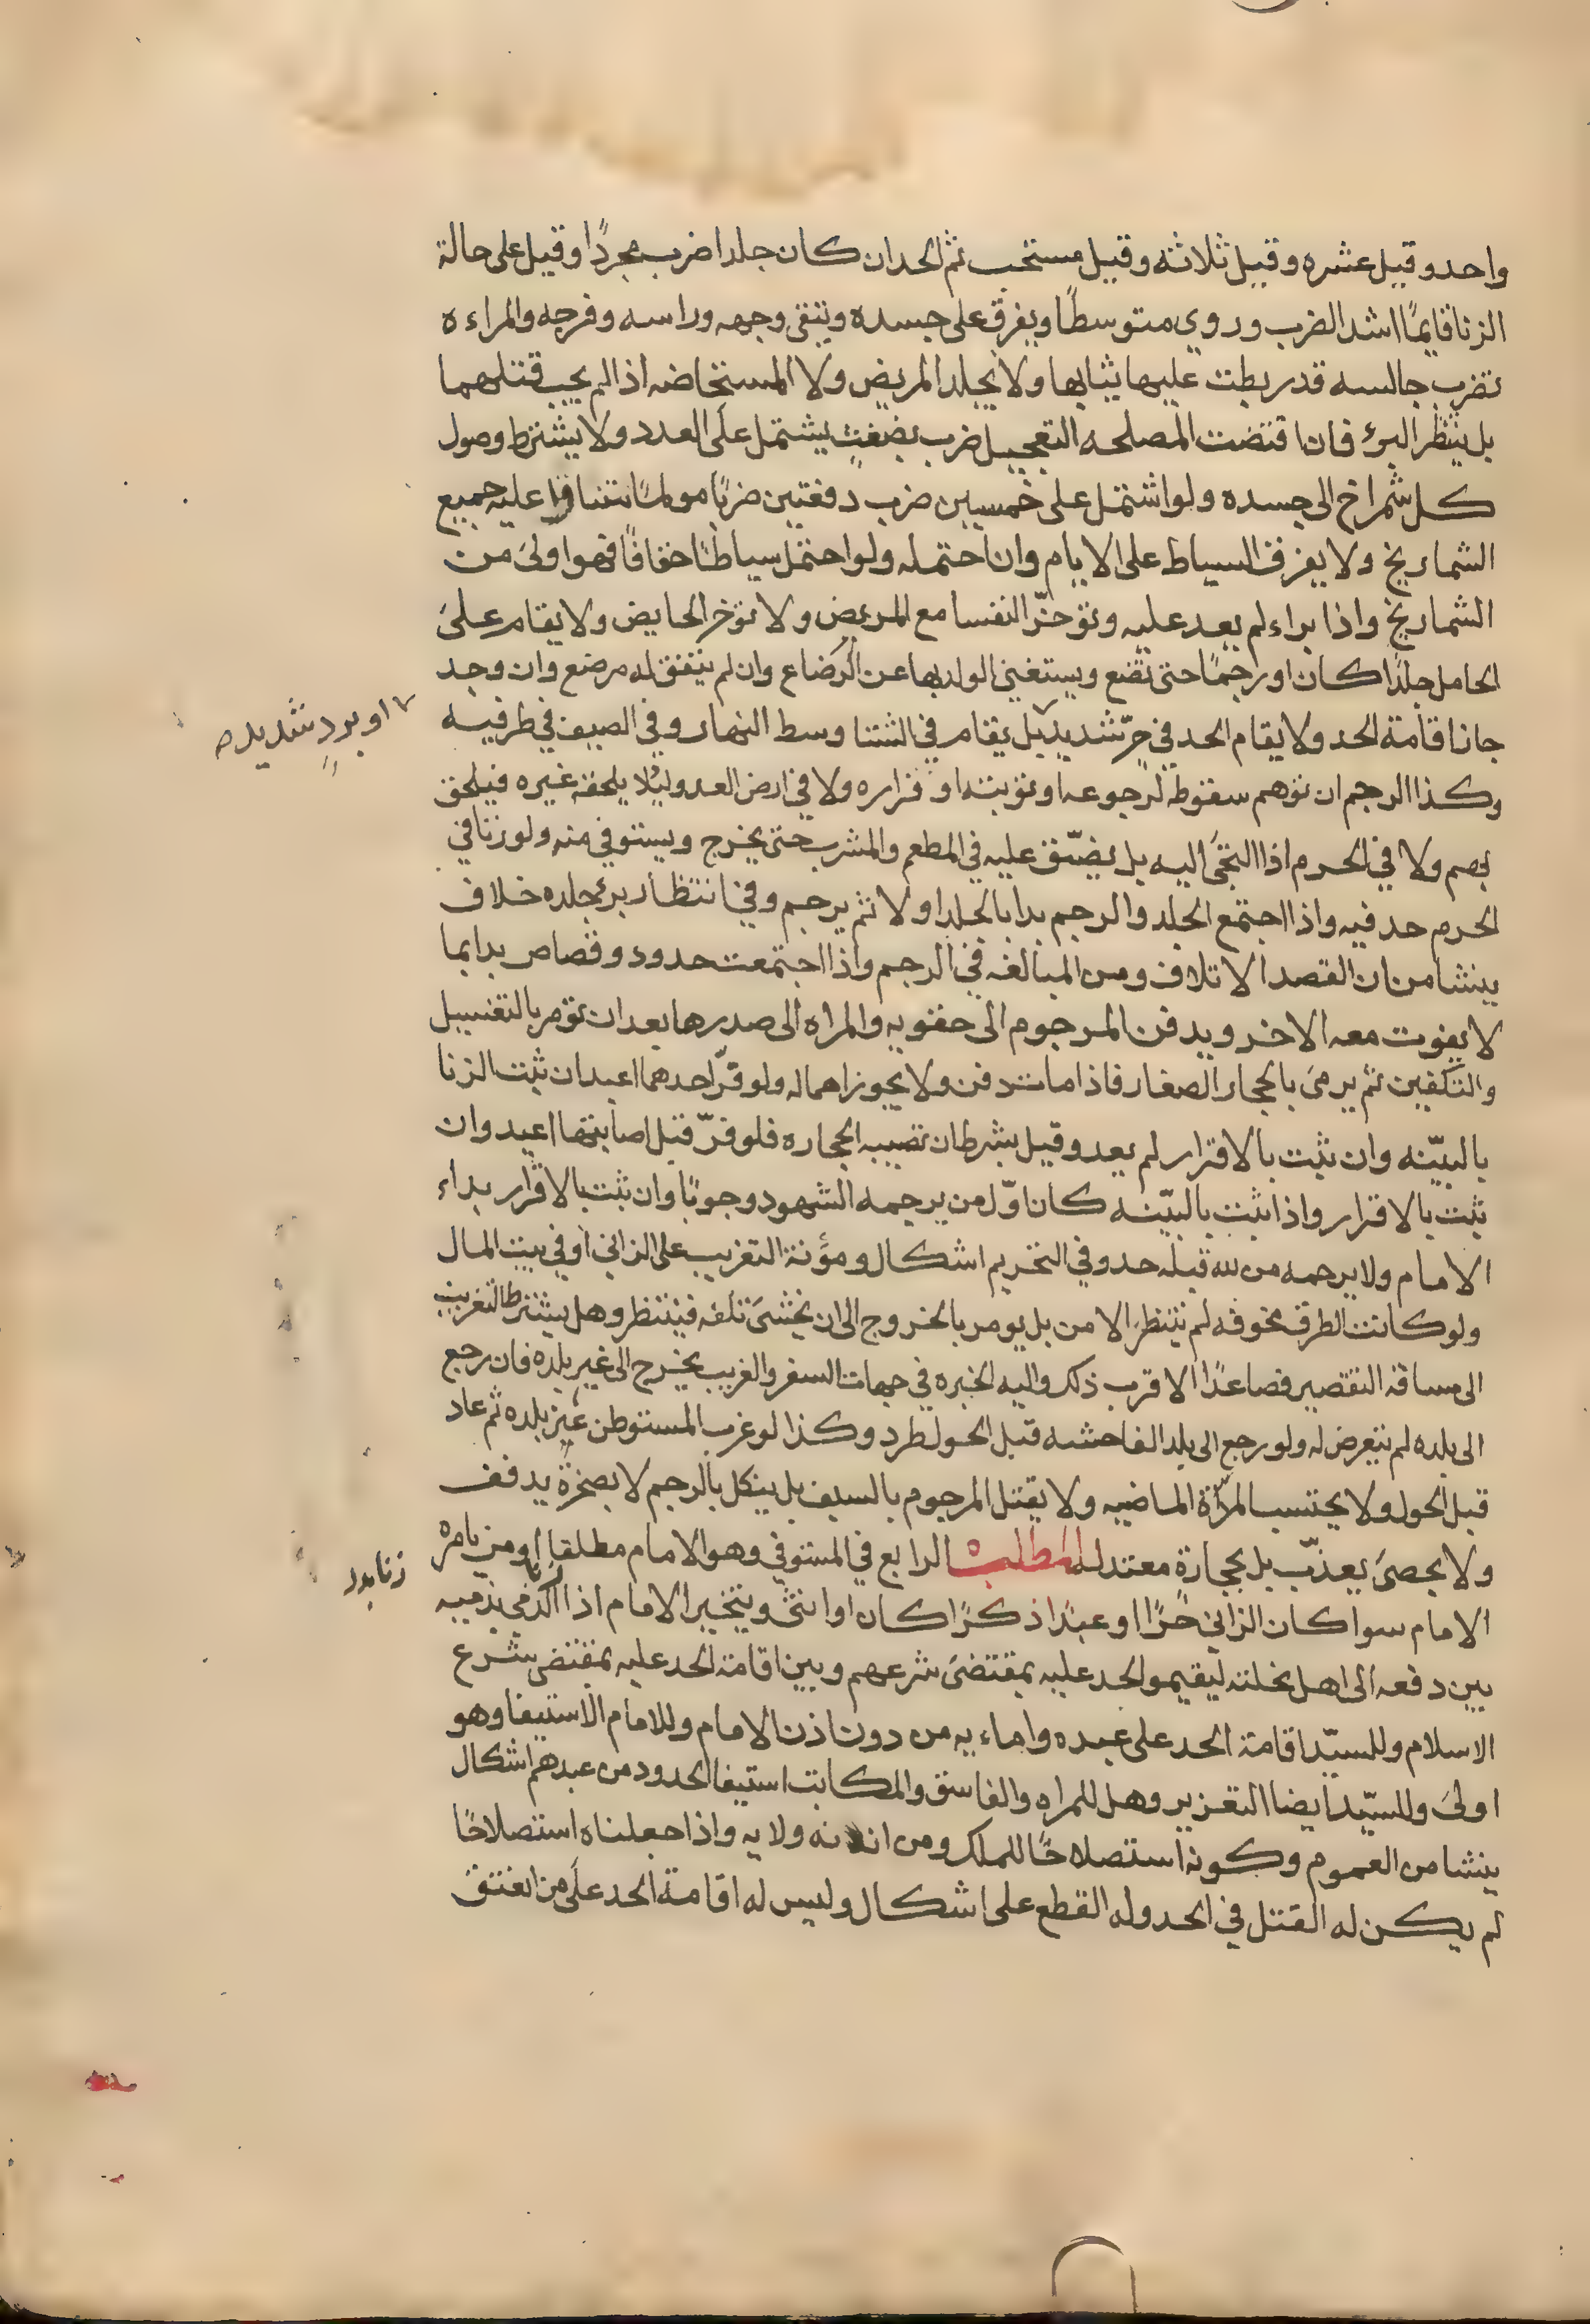 واحد وقيل عشره وقيل ثلاثه وقيل مستحب ثم الحد ان كان جلدا ضرب مجردًا وقيل على حالة
الزنا قايمًا اشد الضرب وروي متوسطًا ويفرق على جسده ويتقى وجهه وراسه وفرجه والمراءه
تضرب جالسه قد ربطت عليها ثيابها ولا يجلد المريض ولا المستحاضه اذا لم يجب قتلهما
بل ينتظر البرؤ فان اقتضت المصلحه التعجيل ضرب بضغثٍ يشتمل على العدد ولا يشترط وصول
كل شمراخ الى جسده ولو اشتمل على خمسين ضرب دفعتين ضربًا مولمًا تتثاقل عليه جميع
الشماريخ ولا يفرق السياط على الايام وان احتمله ولو احتمل سياطًا خفافًا فهو اولى من
الشماريخ واذا براء لم يعد عليه وتؤخّر النفسا مع المريض ولا تؤخر الحايض ولا يقام على
الحامل جلدًا كان او رجمًا حتى تضع ويستغني الولد بها عن الرضاع وان لم يتفق له مرضع وان وجد
جاز اقامة الحد ولا يقام الحد في حرّ شديد بل يقام في الشتا وسط النهار وفي الصيف في طرفيه
او بردٍ شديد صح
وكذا الرجم ان توهم سقوطه لرجوعه او توبته او فراره ولا في ارض العدو ليلا يلحقه غيره فيلحق
بهم ولا في الحرم اذا التجَى اليه بل يضيّق عليه في المطعم والمشرب حتى يخرج ويستوفي منه ولو زنا في
الحرم حد فيه واذا اجتمع الجلد والرجم بدا بالجلد اولا ثم يرجم وفي انتظار برئ جلده خلاف
ينشا من ان القصد الاتلاف ومن المبالغه في الرجم واذا اجتمعت حدود وقصاص بدا بما
لا يفوت معه الاخر ويدفن المرجوم الى حقويه والمراه الى صدرها بعد ان تؤمر بالتغسيل
والتكفين ثم يرمى بالحجار الصغار فاذا مات دفن ولا يجوز اهماله ولو فرّ احدهما اعيد ان ثبت الزنا
بالبيّنه وان ثبت بالاقرار لم يعد وقيل بشرط ان تصيبه الحجاره فلو فرّ قبل اصابتها اعيد وان
ثبت بالاقرار واذا ثبت بالبيّنه كان اوّل من يرجمه الشهود وجوبًا وان ثبت بالاقرار بداء
الامام ولا يرجمه من لله قبله حد وفي التحريم اشكال ومؤنة التغريب على الزاني او في بيت المال
ولو كانت الطرق مخوفه لم ينتظر الامن بل يومر بالخروج الى ان يخشى تلفه فينتظر وهل يشترط التغريب
الى مسافة التقصير فصاعدًا الاقرب ذلك واليه الخيره في جهات السفر والغريب يخرج الى غير بلده فان رجع
الى بلده لم يتعرض له ولو رجع الى بلد الفاحشه قبل الحول طرد وكذا لو غرب المستوطن غير بلده ثم عاد
قبل الحول ولا يحتسب المدّة الماضيه ولا يقتل المرجوم بالسيف بل ينكل بالرجم لا بصخرة يدفف
ولا بحصى يعذّب بل بحجارة معتدله المطلب الرابع في المستوفي وهو الامام مطلقا او من يامره
الامام سوا كان الزاني حُرًّا او عبدًا ذكرًا كان او انثى ويتخير الامام اذا زنا الذمي بذميه
بين دفعه الى اهل نحلته ليقيموا الحد عليه بمقتضى شرعهم وبين اقامة الحد عليه بمقتضى شرع
الاسلام وللسيّد اقامة الحد على عبده واماءيه من دون اذن الامام وللامام الاستيفا وهو
اولى وللسيّد ايضا التعزير وهل للمراه والفاسق والمكاتب استيفا الحدود من عبدهم اشكال
ينشا من العموم وكونه استصلاحًا للملك ومن انه ولايه واذا جعلناه استصلاحًا
لم يكن له القتل في الحد وله القطع على اشكال وليس له اقامة الحد على من انعتق